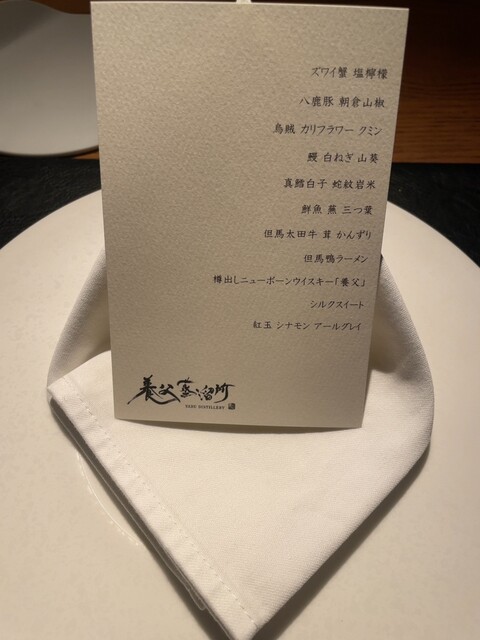 ズワイ蟹 塩檸檬
八鹿豚 朝倉山椒
烏賊 カリフラワー クミン
鰻 白ねぎ 山葵
真鱈白子 蛇紋岩米
鮮魚 蕪 三つ葉
但馬太田牛 茸 かんずり
但馬鴨ラーメン
樽出しニューボーンウイスキー「養父」
シルクスイート
紅玉 シナモン アールグレイ
養父蒸溜所
YABU DISTILLERY